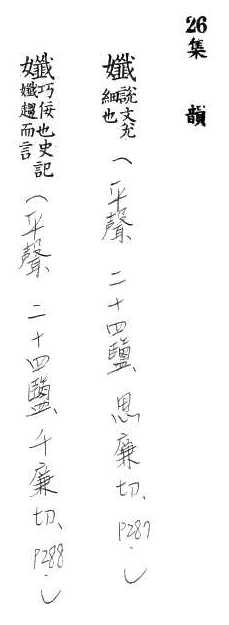 26集韻
孅說文兌細也(平聲 二十四鹽、思廉切、P287.)
孅巧佞也史記孅趨而言(平聲 二十四鹽、千廉切、P288.)